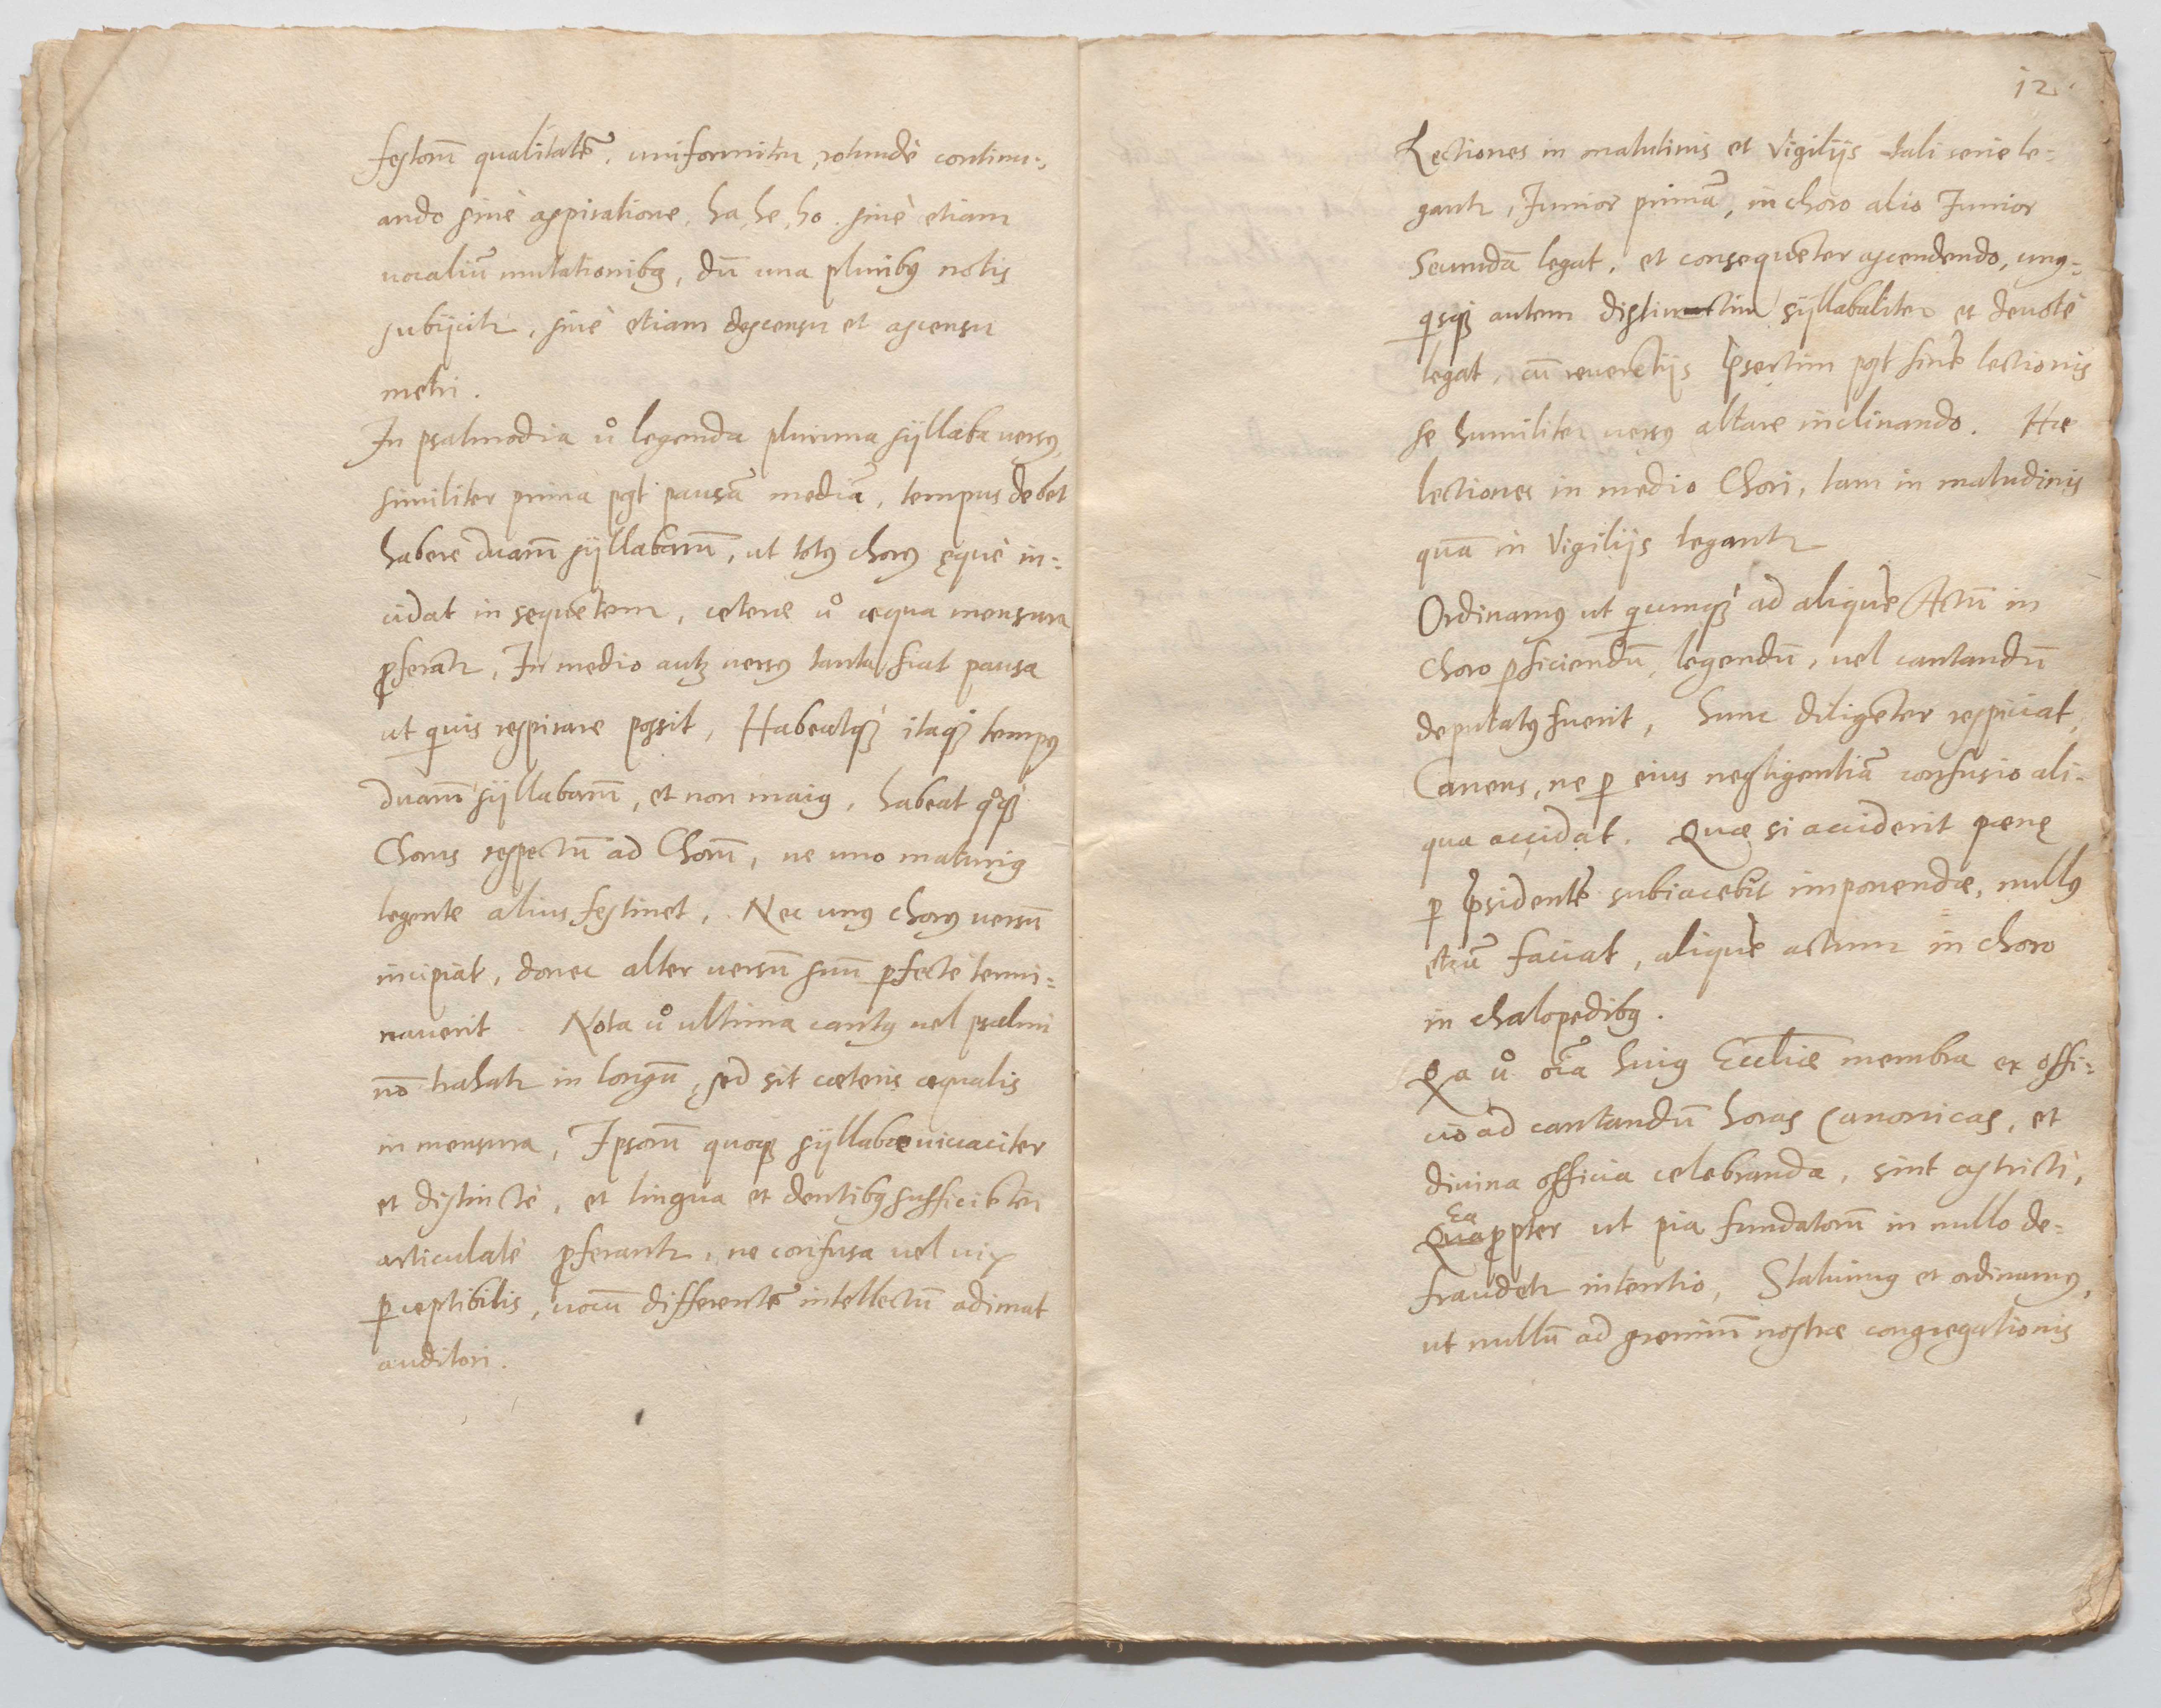 festorū qualitatē, uniformiter, rotundè continu=
ando sinè aspiratione, ha, he, ho. sinè etiam
uocaliū mutationibꝫ, dū una pluribꝰ notis
subijcitr, sinè etiam descensu et ascensu
metri.
In psalmodia uͦ legenda plurima syllaba uersꝰ,
similiter prima pꝰt pausā mediā, tempus debet
habere duarū syllabarū, ut totꝰ chorꝰ ęquè in=
cidat in sequētem, ceterae uͦ aequa mensura
ꝓferātr, In medio autꝫ uersꝰ tanta fiat pausa
ut quis respirare possit, Habeatqꝫ itaqꝫ tempꝰ
duarū syllabarū, et non maiꝰ, habeat qͦqꝫ
Chorus respectū ad Chorū, ne uno maturiꝰ
legente alius festinet, Nec unꝰ chorꝰ uersū
incipiat, donec alter uersū suū ꝑfectè termi=
nauerit. Nota uͦ ultima cantꝰ uel psalmi
nō trahatr in longū, sed sit caeteris aequalis
in mensura, Ipsorū quoqꝫ syllabae uiuaciter
et distinctè, et lingua et dentibꝰ sufficiēter
articulatè ꝓferantr, ne confusa uel uix
ꝑceptibilis, uocū differentē intellectū adimat
auditori.
12.
Lectiones in matutinis et Vigilijs tali serie le=
gantr, Junior primā, in choro alio Junior
Secundā legat, et consequēter ascendendo, unꝰ=
qisqꝫ autem distinctim syllabaliter et deuotè
legat, cū reuerētijs p̄sertim pꝰt finē lectionis
se humiliter uersꝰ altare inclinando. Hae
lectiones in medio Chori, tam in matudinis
quā in Vigilijs legantr
Ordinamꝰ ut qicunqꝫ ad aliquē Actū in
choro ꝑficiendū, legendū, uel cantandū
deputatꝰ fuerit, hunc diligēter respiciat,
Cauens, ne ꝑ eius negligentiā confusio ali=
qua accidat. Quae si acciderit paenę
ꝑ p̄sidentē subiacebit imponendae, nullꝰ
etiā faciat, aliquē actum in choro
in chalopedibꝰ.
Qa uͦ oīa huiꝰ Eccliae membra ex offi=
cio ad cantandū horas Canonicas, et
diuina officia celebranda, sint astricti,
Ea
Quaꝓpter ut pia fundatorū in nullo de=
fraudetr intentio, Statuimꝰ et ordinamꝰ,
ut nullū ad gremiū nostrae congregationis